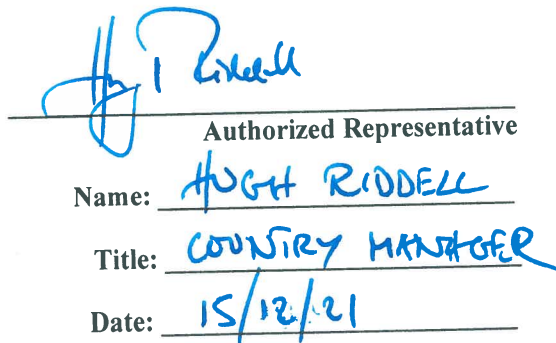 Hugh Riddell
Authorized Representative
Name: HUGH RIDDELL
Title: COUNTRY MANAGER
Date: 15/12/21